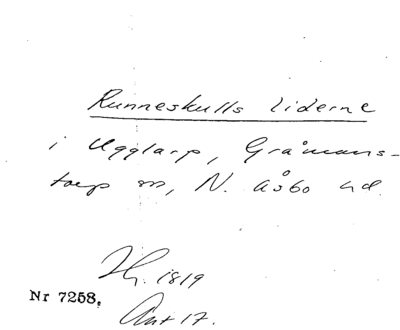 Runneskulls liderne
i Ugglarp, Gråmans-
torp sn, N. Åsbo hd.
Hg. 1819
Nr 7258.
Ant 17.